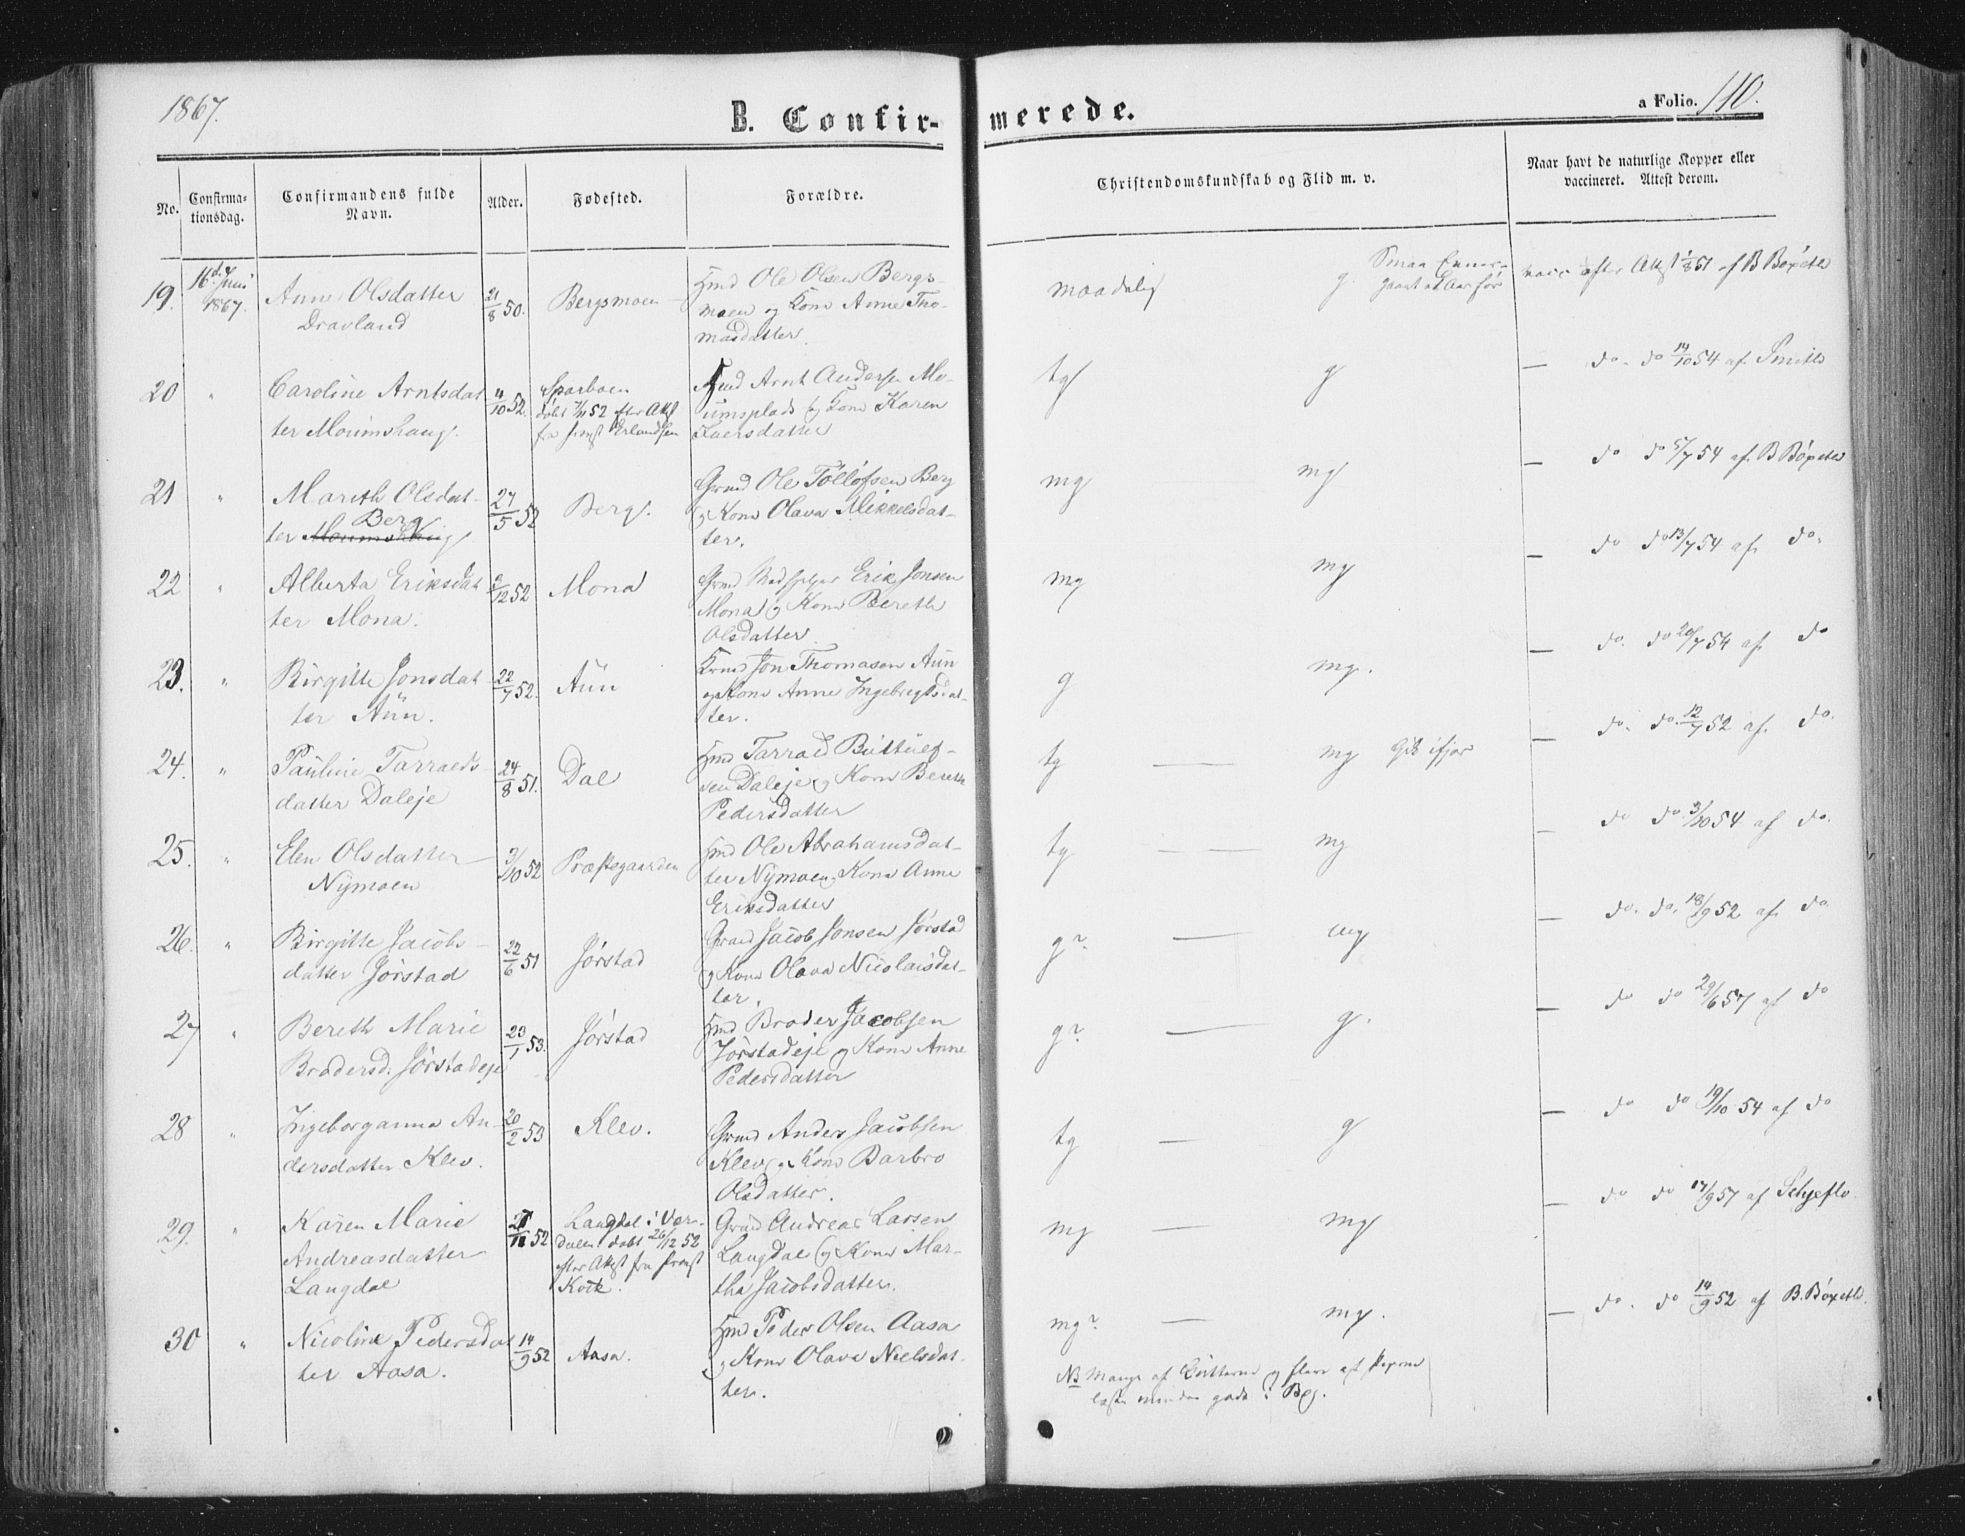 1867.
B. Confir-
merede.
a Folio. 110.
No.
Confirma-
tionsdag.
Confirmandens fulde
Navn.
Alder.
Fødested.
Forældre.
Christendomskundskab og Flid m. v.
Naar havt de naturlige Kopper eller
vaccineret. Attest derom.
19. 16de Juni 1867. Ane Olsdatter
Dravland
21/8 50. Bergsmoen
Hmd Ole Olsen Bergs-
moen og Kone Anne Tho-
masdatter.
maadelig g.
vacc efter Attest 1/8 51 af B Bøxeth
20 " Caroline Arntsdat
ter Mouimshaug.
4/10 52. Sparboen
døbt 7/11 52 efter Att
fra Erlandsen
Arnt Andersen Mo-
umsplads og Kone Karen
datter
tg g
— do. do 14/10 54 af Smith
21 " Mareth Olsdat-
Berg
ter Mouimshaug
27/5 52 Berg.
Grmd Ole Tollofsen Berg
og Kone Olava Mikkelsdat-
ter.
mg mg
— do do 5/7 54 af B Bøxeth
22 " Alberta Eriksdat
ter Mona.
3/12 52 Mona
Grmd Erik Jonsen
Mona og Kone Bereth
Olsdatter
mg mg
— do do 13/7 54 af do.
23. " Birgitte Jonsdat-
ter Aün.
22/7 52. Aün
Jon Thomasen Aün
og Kone Anne Ingebregtsdat-
ter.
g mg.
— do. do 20/7 54 af do
24. " Pauline Tarraeds-
datter Daleje
24/8 51. Dal
Hmd Tarrald
sen Daleje og Kone Bereth
Pedersdatter
tg — mg Gik ifjor
— do. do. 12/7 52 af do.
25. " Elen Olsdatter
Nymoen
3/10 52 Præstegaarden
Hmd Ole Abrahamsdat-
ter Nymoen, Kone Anne
Eriksdatter
tg — mg
— do do. 3/10 54 af do.
26. " Birgitte Jacobs-
datter Jørstad
22/6 51 Jørstad
Grmd Jacob Jonsen Jørstad
og Kone Olava Nicolaisdat-
ter.
g? — mg
— do. do. 18/9 52 af do.
27 " Bereth Marie
Brodersd. Jørstadeje
23/1 53. Jørstad
Hmd Broder Jacobsen
Jørstadeje og Kone Anne
Pedersdatter
g? — g.
— do do 29/6 57 af do
28 " Ingeborganna An-
dersdatter Klev.
20/2 53 Klev.
Grmd Anders Jacobsen
Klev og Kone Barbro
Olsdatter.
tg — g
— do do 19/10 54 af do
29. " Karen Marie
Andreasdatter
Langdal
52 Langdal i Vær-
dalen døbt 26/12 52
efter Attest fra Provst
Kock.
Grmd Andreas Larsen
Langdal og Kone Mar-
tha Jacobsdatter.
mg — mg
— do do 17/9 57 af Selyeflo
30 " Nicoline Pedersdat
ter Aasa.
14/9 52 Aasa.
Hmd Peder Olsen Aasa
og Kone Olava Nielsdat-
ter.
mg? — mg.
— do. do 14/9 52 af B. Bøxeth.
NB Mange af og flere af
læste mindre godt i Bog.